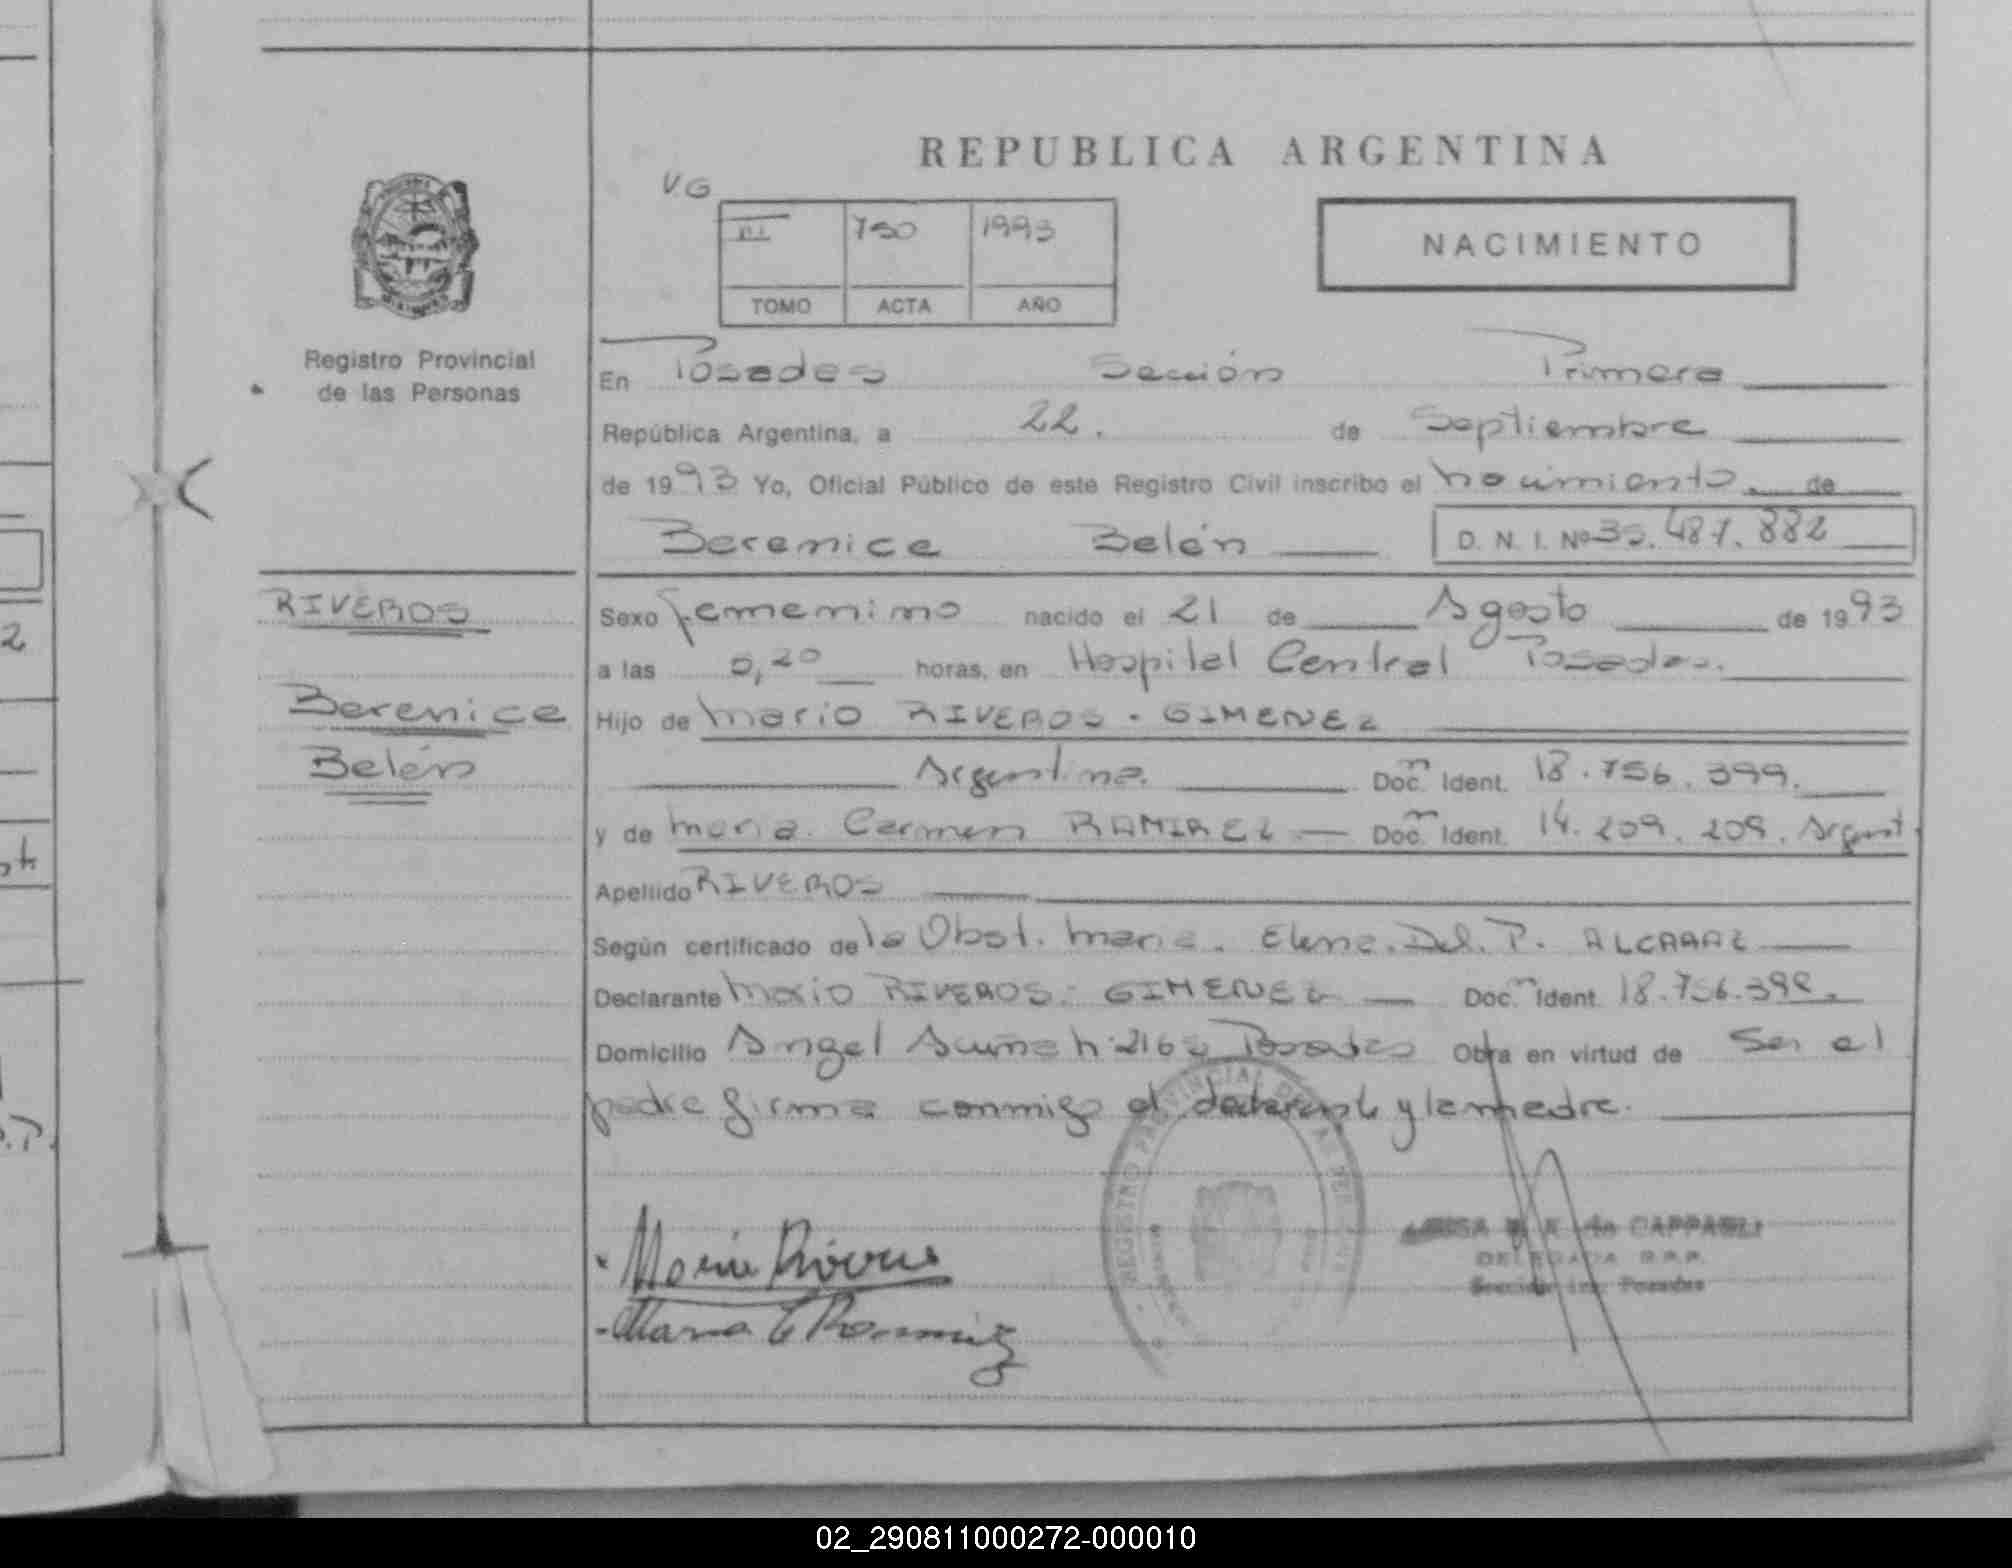 REPUBLICA ARGENTINA
VG
750 1993
TOMO ACTA AÑO
NACIMIENTO
Registro Provincial
de las Personas
En Posadas Sección Primera
República Argentina, a 22. de Septiembre
de 1993 Yo, Oficial Público de este Registro Civil inscribo el nacimiento. de
Berenice Belén D. N. I. Nº 35.487.882
RIVEROS
Berenice
Belén
Sexo femenino nacido el 21 de Agosto de 1993
a las 0,20 horas, en Hospital Central Posadas.
Hijo de Mario RIVEROS - GIMENEZ
Argentina. Doc. Ident. 18.756.399.
y de Maria Carmen RAMIREZ — Doc. Ident. 14.209.209. Argent.
Apellido RIVEROS
Según certificado de la Obst. Maria Elena Del. P. ALCARAZ
Declarante Mario RIVEROS - GIMENEZ — Doc. Ident. 18.756.399.
Domicilio Angel Acuña Posadas Obra en virtud de Ser el
padre firma conmigo el declarante y la madre.
REGISTRO PROVINCIAL DE LAS PER
Mario Riveros
Maria C Ramirez
de CAPPAGLI
DELEGADA R.P.P.
Sección 1ra. Posadas
02_290811000272-000010